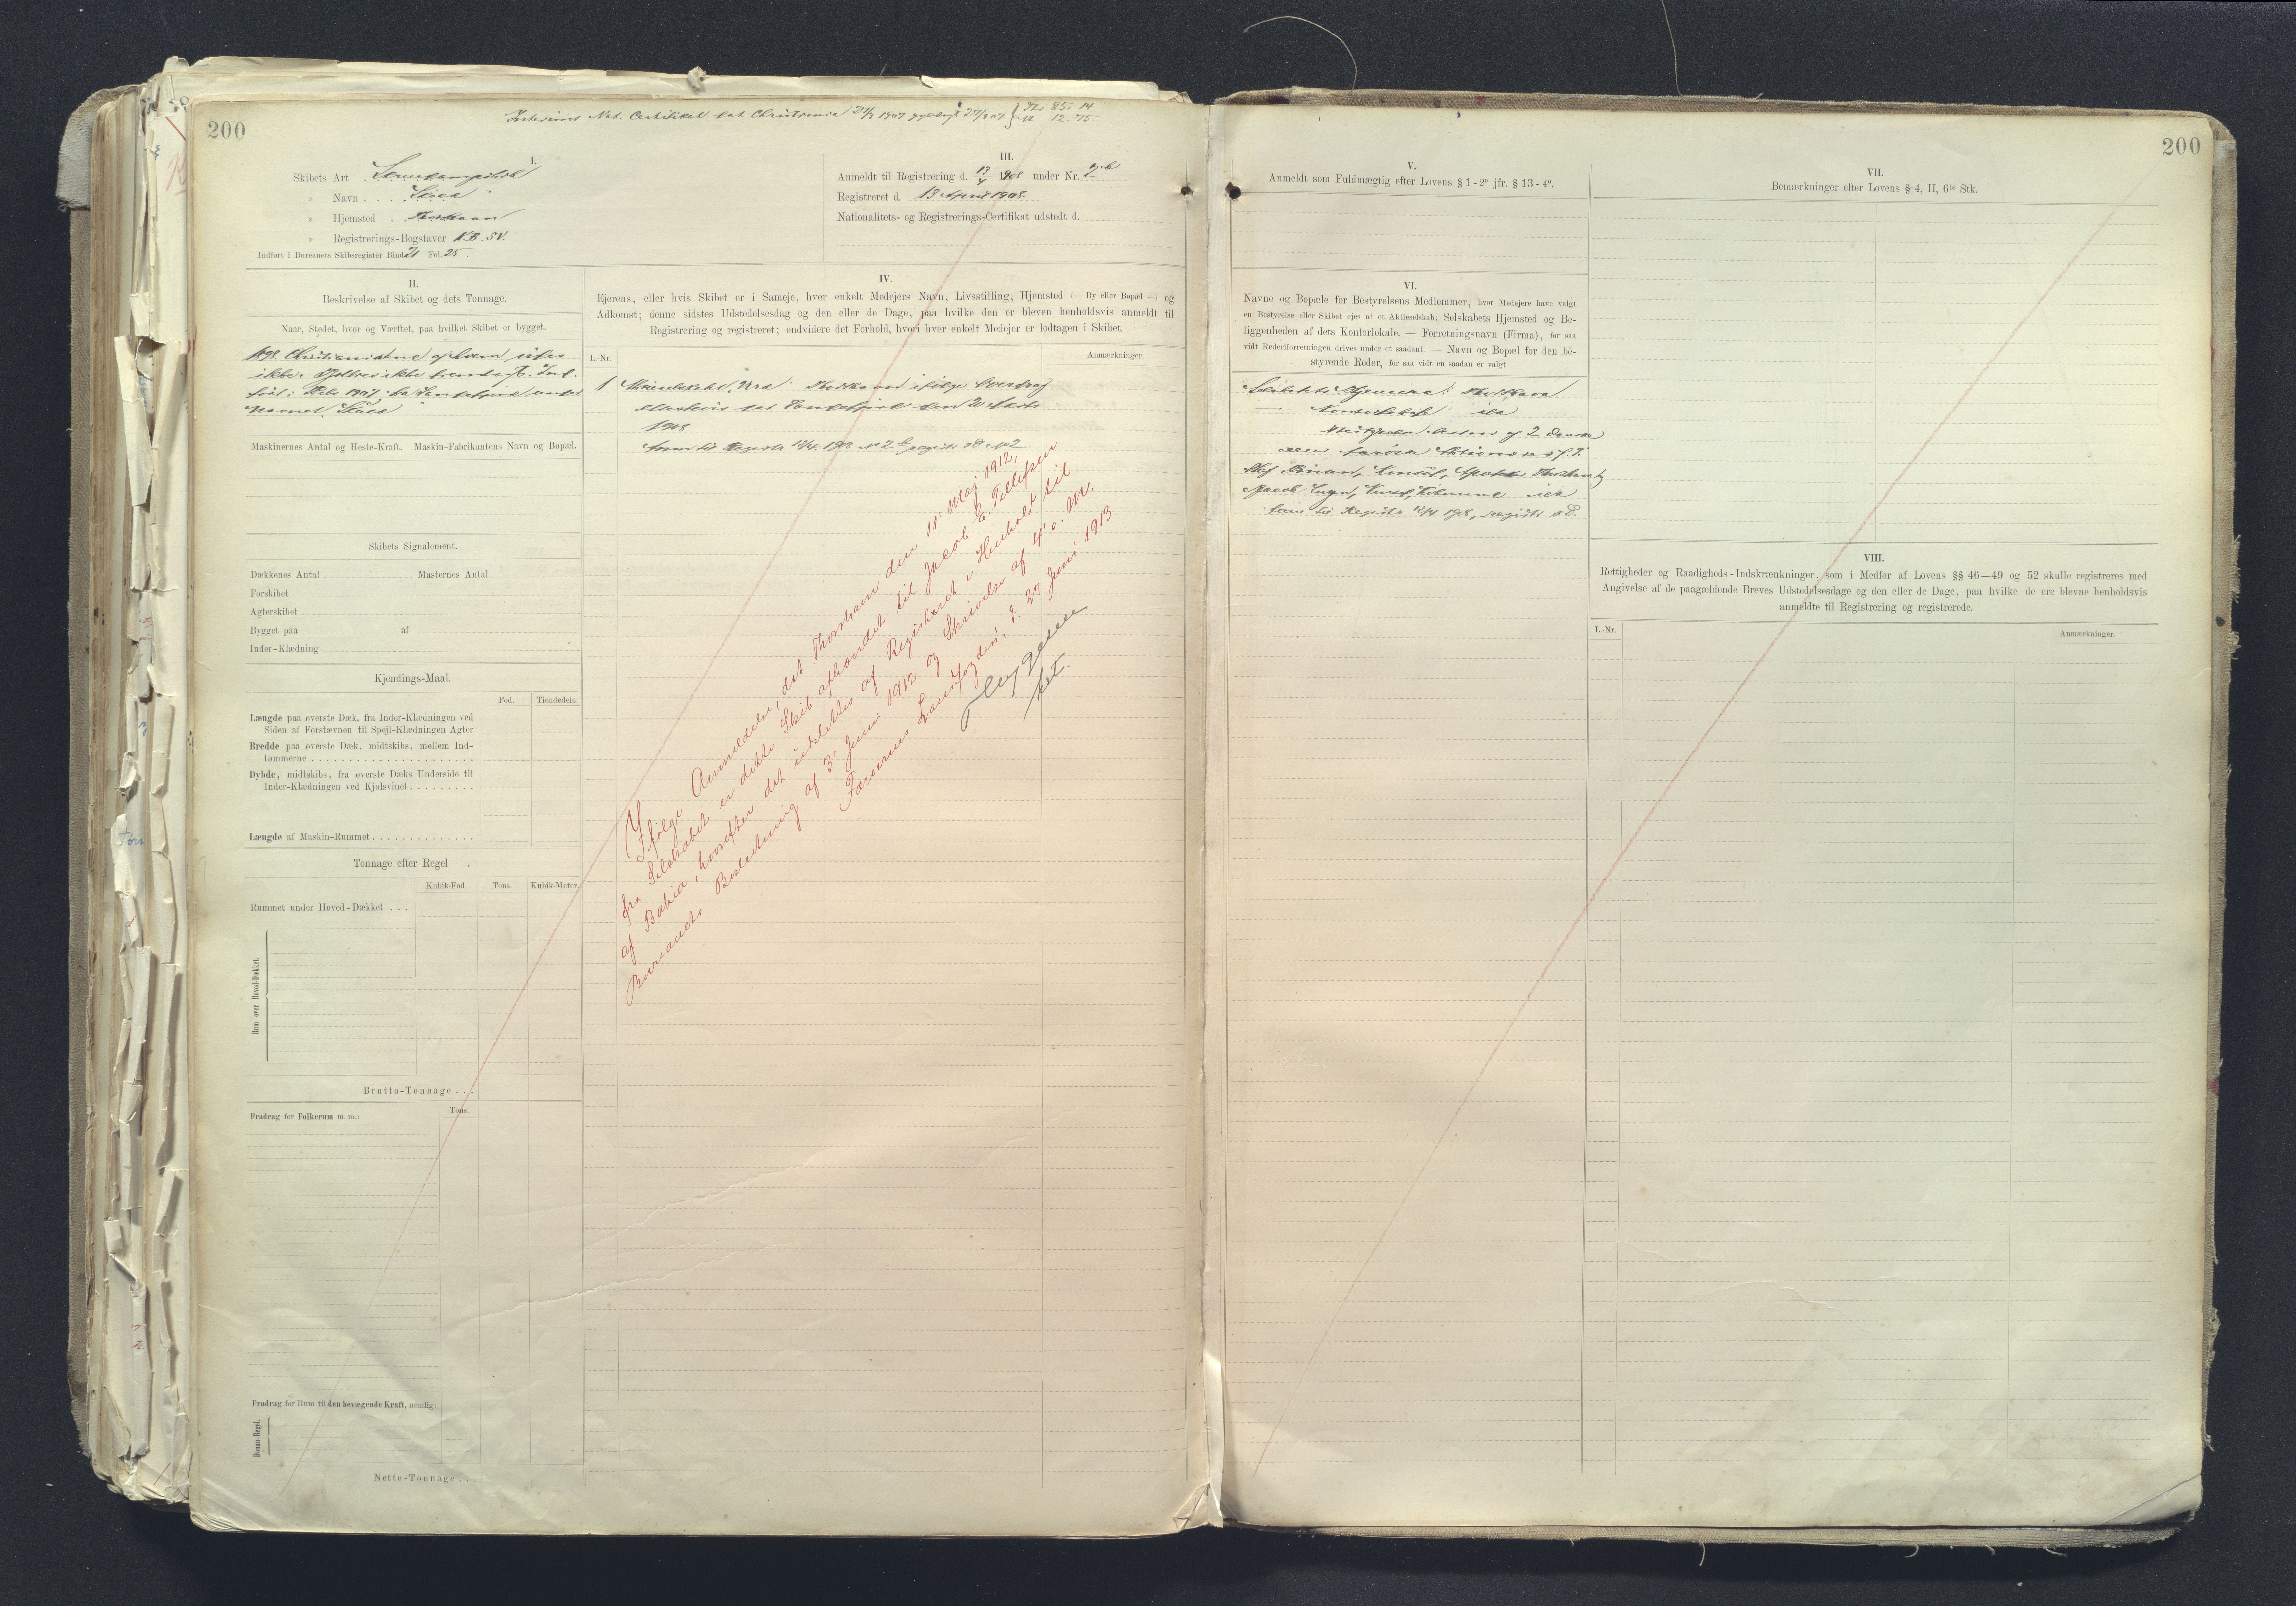 200
Interims Nat. Certifikat dat Christiania 27/7 1907 gyldigt 27/8 07 } 85. 14
12. 75
I.
Skibets Art . Skruedampskib
» Navn . . . .
» Hjemsted . Thorshavn
» Registrerings-Bogstaver N.B.S.V.
Indført i Bureauets Skibsregister Bind 21 Fol. 25
III.
Anmeldt til Registrering d. 13/4 1908 under Nr. 2 b
Registreret d. 13 April 1908.
Nationalitets- og Registrerings-Certifikat udstedt d.
II.
Beskrivelse af Skibet og dets Tonnage.
Naar, Stedet, hvor og Værftet, paa hvilket Skibet er bygget.
1898. Christiania
ikke.
1907 fra under
Navnet
Maskinernes Antal og Heste-Kraft. Maskin-Fabrikantens Navn og Bopæl.
Skibets Signalement.
Dækkenes Antal Masternes Antal
Forskibet
Agterskibet
Bygget paa af
Inder-Klædning
Kjendings-Maal.
Fod. Tiendedele.
Længde paa øverste Dæk, fra Inder-Klædningen ved
Siden af Forstævnen til Spejl-Klædningen Agter
Bredde paa øverste Dæk, midtskibs, mellem Ind-
tømmerne . . . . . . . . . . . . . . . . . . . . . .
Dybde, midtskibs, fra øverste Dæks Underside til
Inder-Klædningen ved Kjølsvinet . . . . . . . . .
Længde af Maskin-Rummet . . . . . . . . . . . . . .
Tonnage efter Regel .
Kubik-Fod. Tons. Kubik-Meter.
Rummet under Hoved-Dækket . . .
Rum over Hoved-Dækket.
Brutto-Tonnage . . .
Fradrag for Folkerum m. m.: Tons.
Fradrag for Rum til den bevægende Kraft, nemlig:
Donau-Regel.
Netto-Tonnage . . .
IV.
Ejerens, eller hvis Skibet er i Sameje, hver enkelt Medejers Navn, Livsstilling, Hjemsted (— By eller Bopæl —) og
Adkomst; denne sidstes Udstedelsesdag og den eller de Dage, paa hvilke den er bleven henholdsvis anmeldt til
Registrering og registreret; endvidere det Forhold, hvori hver enkelt Medejer er lodtagen i Skibet.
L.-Nr. Anmærkninger.
1 Aktieselskabet Thorshavn ifølge
dat den 20 Marts
1908
Anm til Registr 13/4 1908 No 2 b registr s D No 2
Ifølge Anmeldelse, dat. Thorshavn den 11' Maj 1912,
fra Selskabet er dette Skib afhændet til Jacob E. Tillefsen
af Bahia, hvorefter det udslettes af Registret i Henhold til
Bureauets Beslutning af 3' Juni 1912 og Skrivelse af 4' s. M.
Færøernes Landfogderi, d. 27 Juni 1913.
kst.
200
V.
Anmeldt som Fuldmægtig efter Lovens § 1 - 2º jfr. § 13 - 4º.
VI.
Navne og Bopæle for Bestyrelsens Medlemmer, hvor Medejere have valgt
en Bestyrelse eller Skibet ejes af et Aktieselskab; Selskabets Hjemsted og Be-
liggenheden af dets Kontorlokale. — Forretningsnavn (Firma), for saa
vidt Rederiforretningen drives under et saadant. — Navn og Bopæl for den be-
styrende Reder, for saa vidt en saadan er valgt.
Selskabets Hjemsted: Thorshavn
— Kontorlokale ibd
Bestyrelsen bestaar af 2 Danske
Aktionærer
Jacob Lützen, Konsul, ibd
Anm til Registr 13/4 1908, registr s D.
VII.
Bemærkninger efter Lovens § 4, II, 6te Stk.
VIII.
Rettigheder og Raadigheds-Indskrænkninger, som i Medfør af Lovens §§ 46—49 og 52 skulle registreres med
Angivelse af de paagældende Breves Udstedelsesdage og den eller de Dage, paa hvilke de ere blevne henholdsvis
anmeldte til Registrering og registrerede.
L.-Nr. Anmærkninger.